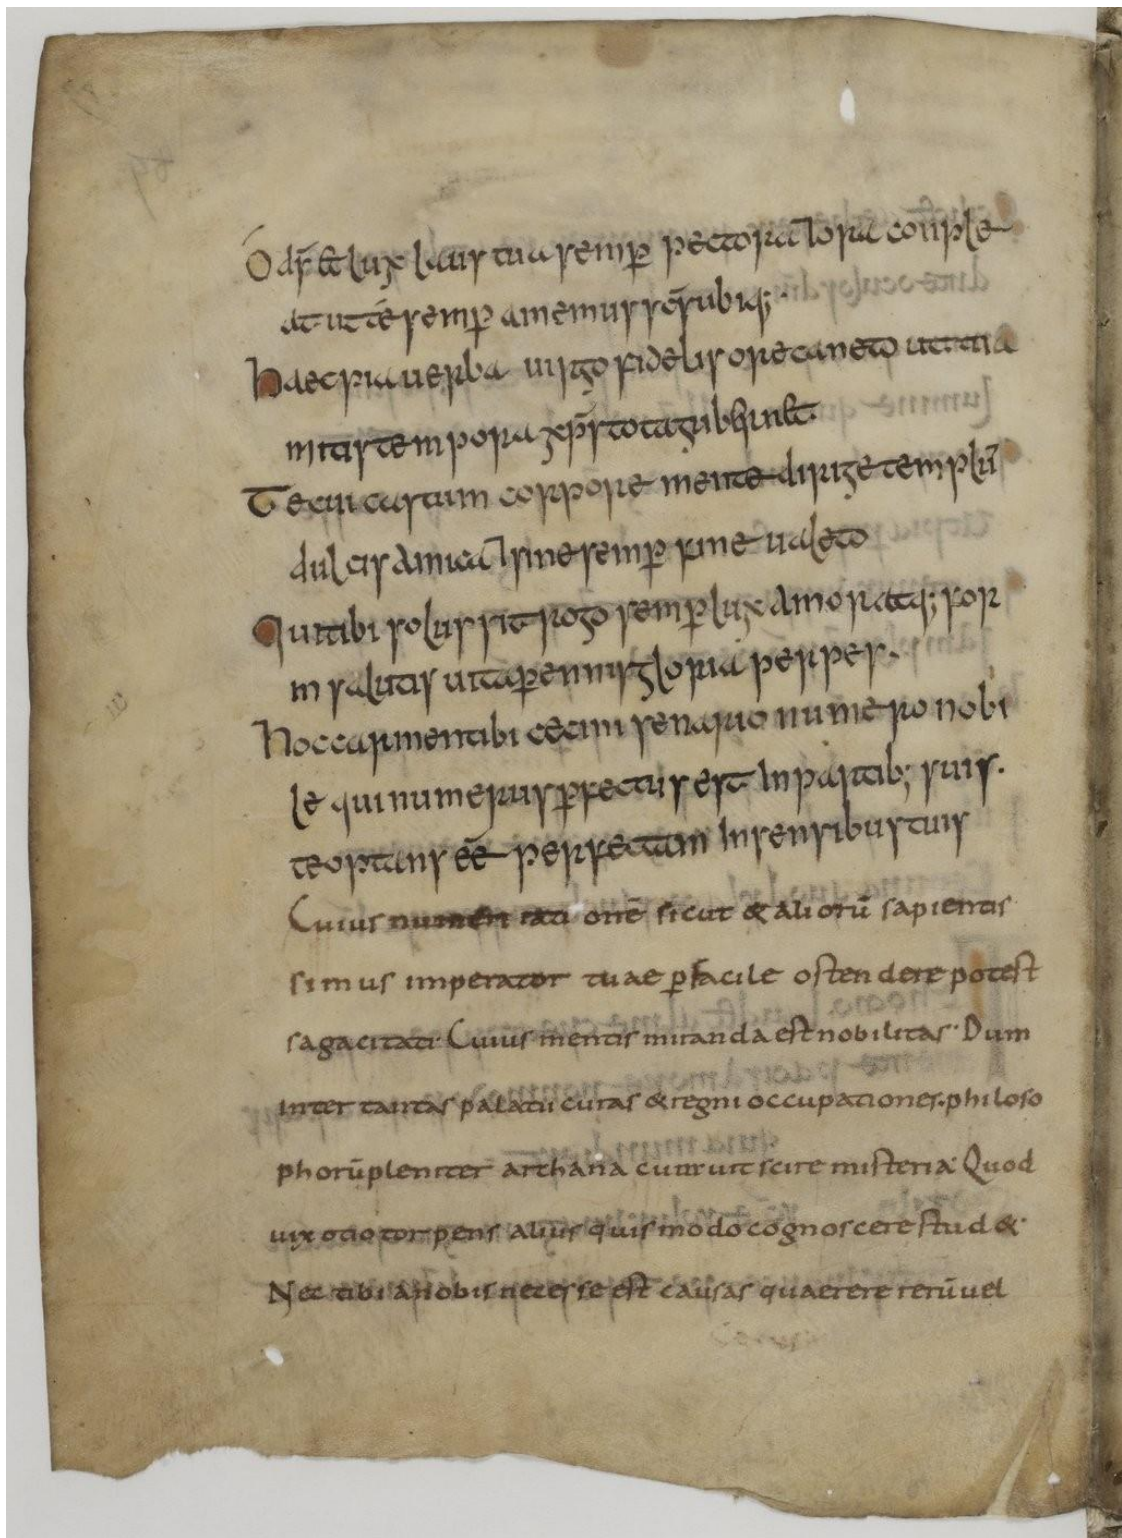 O ds̄ et lux laus tua semꝑ pectora ⁊ ora conple
at ut té semꝑ amemus scs̄ ubiq;.
Haec pia uerba uirgo fidelis ore caneto ut tua
mitis tempora xps̄ tota gub̄nͣet
Tecui castum corpore mente dirige templū
dulcis amica ⁊ sine semꝑ fine ualeto
Qui tibi solus sit rogo semꝑ lux amor atq; for
m salutis uita ꝑennis gloria perpes.
Hoc carmen tibi cecini senario numero nobi
le qui numerus ꝑfectus est In partib; suis.
te optans eē perfectam In sensibus tuis
Cuius numeri rationē sicut & aliorū sapientis
simus imperator tuae ꝑfacile ostendere potest
sagacitati. Cuius mentis miranda est nobilitas. Dum
inter tantas palatii curas & regni occupationes. philoso
phorū pleniter archana curauit scire misteria. Quod
uix otio torpens alius quis modo cognoscere stud&.
Nec tibi a nobis necesse est causas quaerere rerū uel